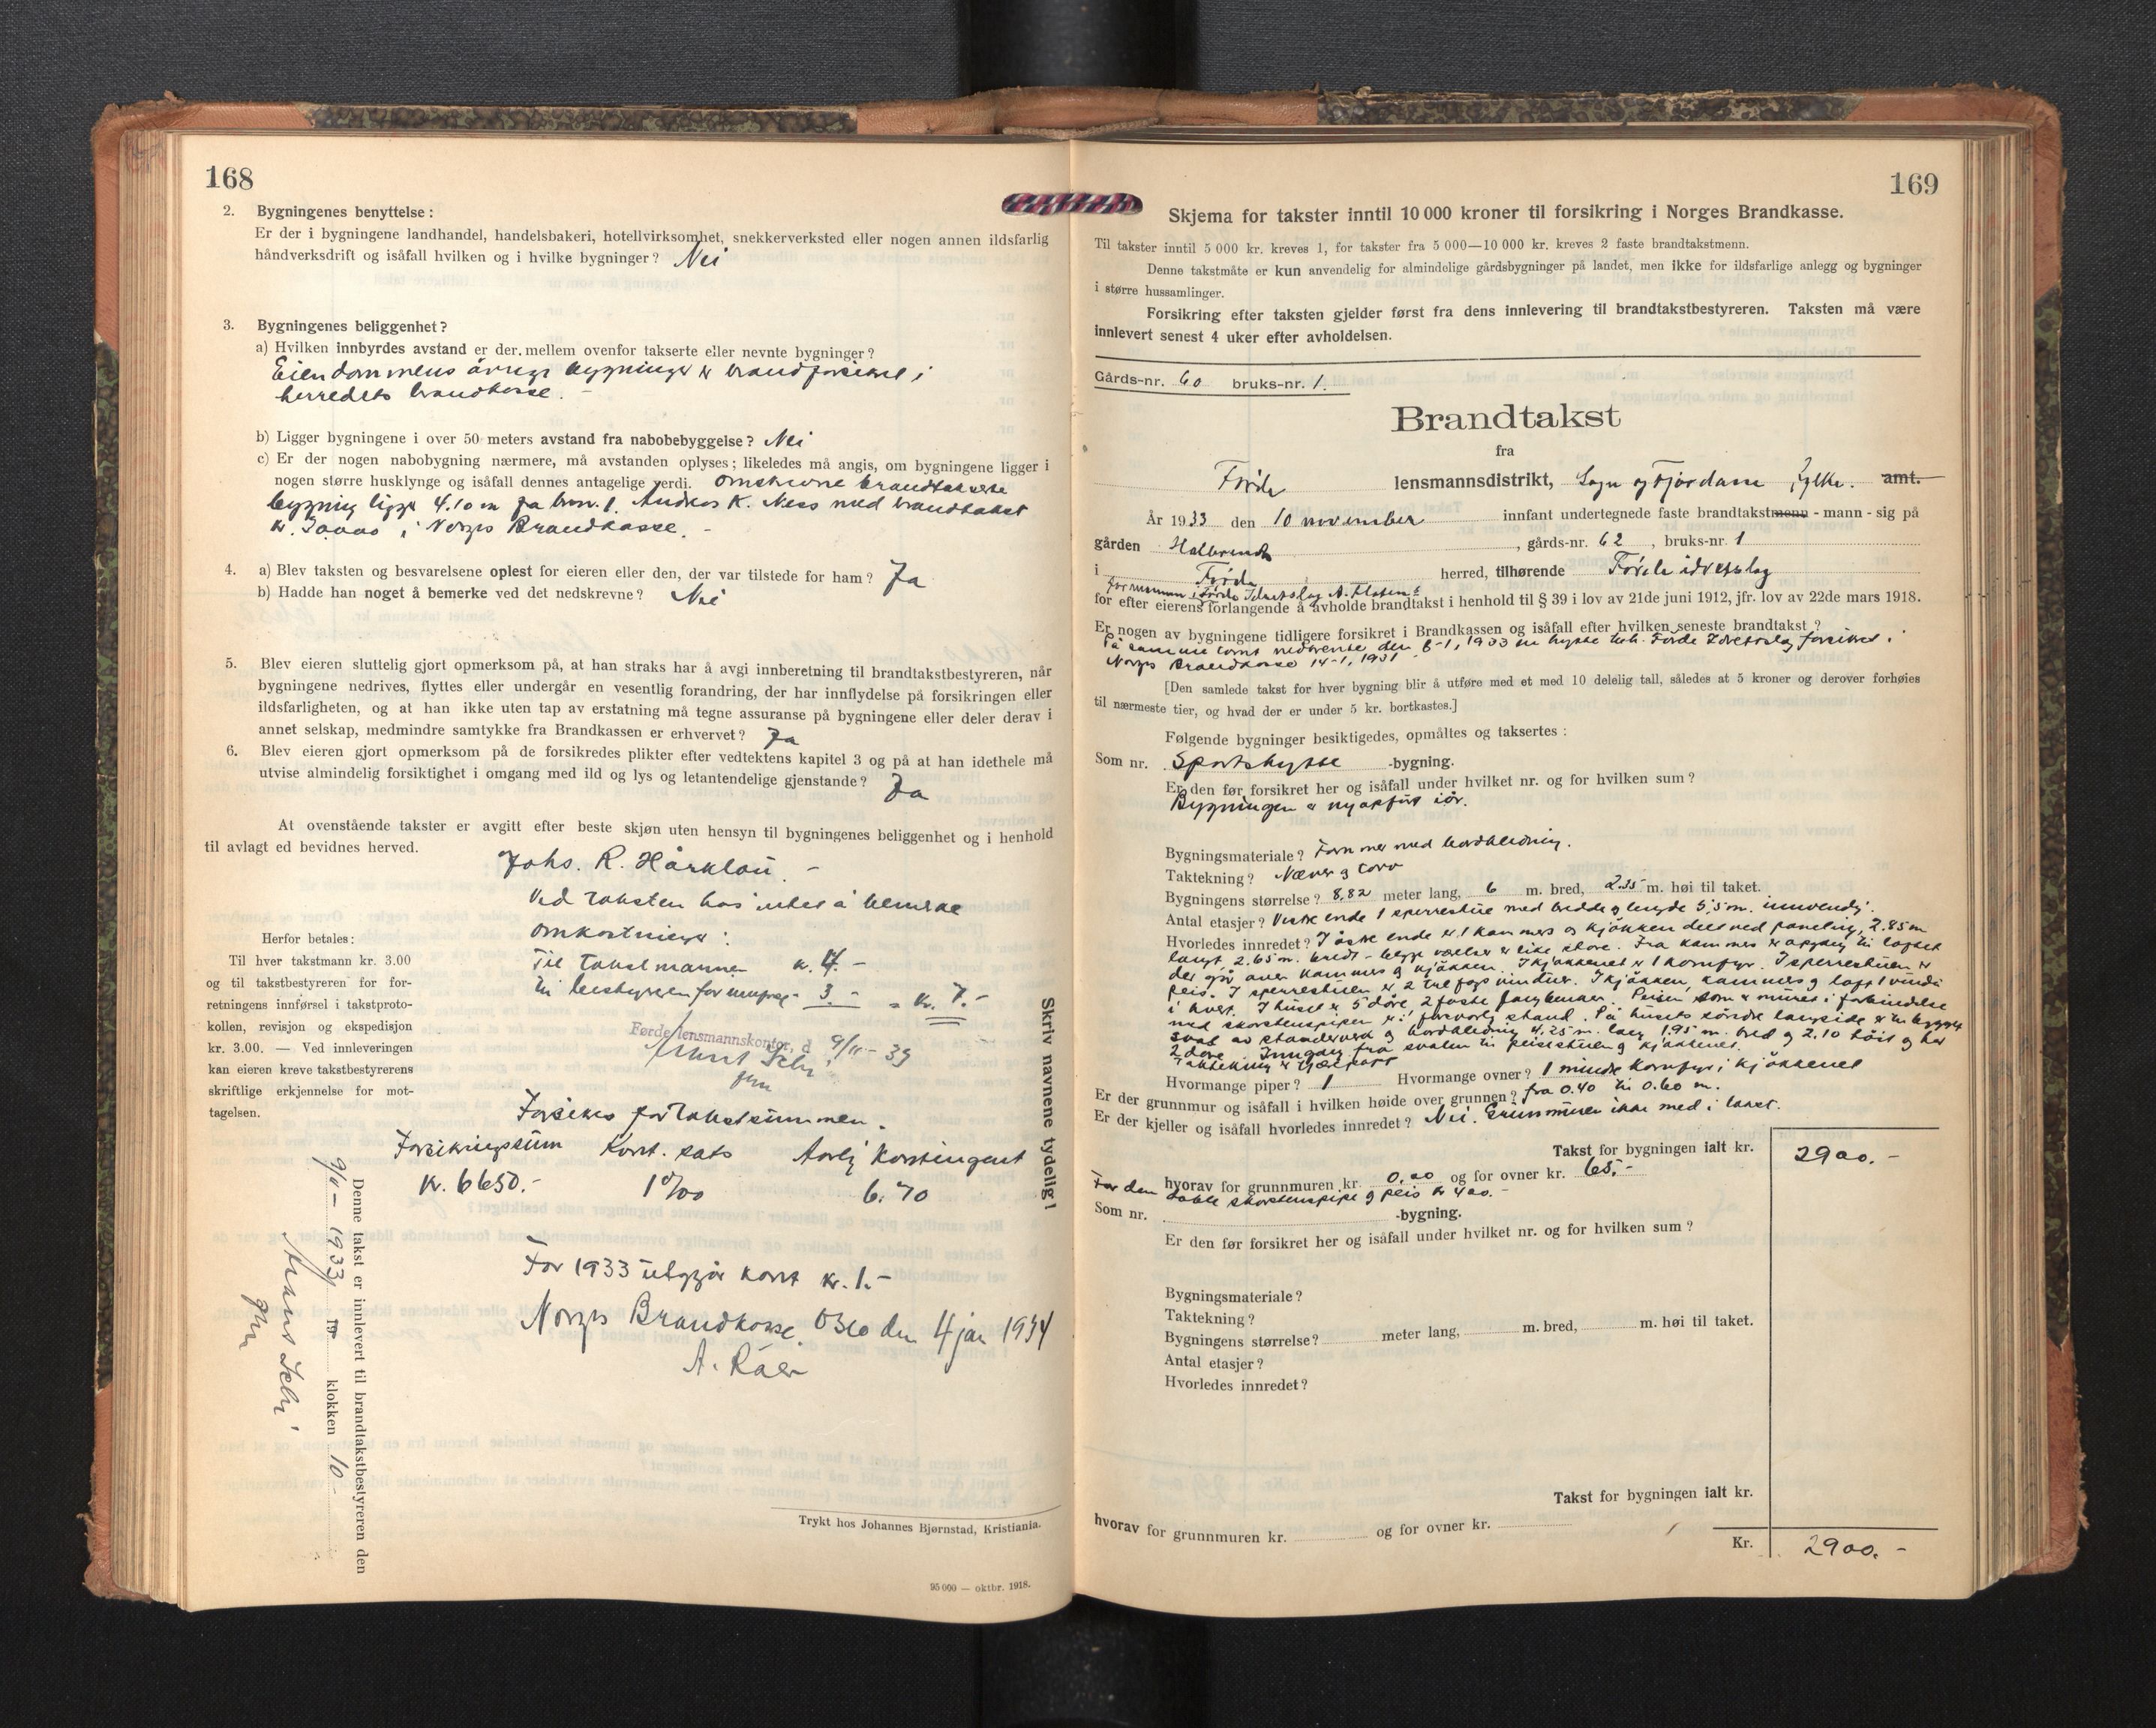 168
2. Bygningenes benyttelse :
Er der i bygningene landhandel, handelsbakeri, hotellvirksomhet, snekkerverksted eller nogen annen ildsfarlig
håndverksdrift og isåfall hvilken og i hvilke bygninger ? Nei
3. Bygningenes beliggenhet ?
a) Hvilken innbyrdes avstand er der mellem ovenfor takserte eller nevnte bygninger ?
Eiendommens øvrige bygninger er brandforsikret i
herredets brandkasse. -
b) Ligger bygningene i over 50 meters avstand fra nabobebyggelse ? Nei
c) Er der nogen nabobygning nærmere, må avstanden oplyses ; likeledes må angis, om bygningene ligger i
nogen større husklynge og isåfall dennes antagelige verdi. Omskrevne brandtakserte
bygning ligger 4.10 m fra brnr. 1. Andreas K. Ness med brandtakst
kr. i Norges Brandkasse. -
4. a) Blev taksten og besvarelsene oplest for eieren eller den, der var tilstede for ham ? Ja
b) Hadde han noget å bemerke ved det nedskrevne ? Nei
5. Blev eieren sluttelig gjort opmerksom på, at han straks har å avgi innberetning til brandtakstbestyreren, når
bygningene nedrives, flyttes eller undergår en vesentlig forandring, der har innflydelse på forsikringen eller
ildsfarligheten, og at han ikke uten tap av erstatning må tegne assuranse på bygningene eller deler derav i
annet selskap, medmindre samtykke fra Brandkassen er erhvervet ? Ja
6. Blev eieren gjort opmerksom på de forsikredes plikter efter vedtektens kapitel 3 og på at han idethele må
utvise almindelig forsiktighet i omgang med ild og lys og letantendelige gjenstande ? Ja
At ovenstående takster er avgitt efter beste skjøn uten hensyn til bygningenes beliggenhet og i henhold
til avlagt ed bevidnes herved.
Johs. R. Hårklau. -
Ved taksten has intet å bemerke
Omkostninger :
Til takstmannen kr. 4. -
Til bestyreren 3. - = kr. 7. -
Førde lensmannskontor, d 9/11 - 33
Herfor betales :
Til hver takstmann kr. 3.00
og til takstbestyreren for for-
retningens innførsel i takstproto-
kollen, revisjon og ekspedisjon
kr. 3.00. — Ved innleveringen
kan eieren kreve takstbestyrerens
skriftlige erkjennelse for mot-
tagelsen.
Forsikres for takstsummen.
Forsikringssum Kont. sats Aarlig Kontingent
Kr. 6650.- 1 0/00 6.70
For 1933 utgjør kont kr. 1.-
Norges Brandkasse, Oslo den 4 jan 1934
A. Ráer
Skriv navnene tydelig !
Denne takst er innlevert til brandtakstbestyreren den
9/11 - 1933 19 klokken 10
Trykt hos Johannes Bjørnstad, Kristiania.
95 000 — oktbr. 1918.
169
Skjema for takster inntil 10 000 kroner til forsikring i Norges Brandkasse.
Til takster inntil 5 000 kr. kreves 1, for takster fra 5 000—10 000 kr. kreves 2 faste brandtakstmenn.
Denne takstmåte er kun anvendelig for almindelige gårdsbygninger på landet, men ikke for ildsfarlige anlegg og bygninger
i større hussamlinger.
Forsikring efter taksten gjelder først fra dens innlevering til brandtakstbestyreren. Taksten må være
innlevert senest 4 uker efter avholdelsen.
Gårds-nr. 60 bruks-nr. 1.
Brandtakst
fra
Førde lensmannsdistrikt, Sogn og Fjordane fylke. amt.
År 1933 den 10 november innfant undertegnede faste brandtakstmenn - mann - sig på
gården Halbrendt, gårds-nr. 62, bruks-nr. 1
i Førde herred, tilhørende Førde idrettslag
formannen i Førde Idrettslag A. Flaten
for efter eierens forlangende å avholde brandtakst i henhold til § 39 i lov av 21de juni 1912, jfr. lov av 22de mars 1918.
Er nogen av bygningene tidligere forsikret i Brandkassen og isåfall efter hvilken seneste brandtakst ?
På samme tomt nedbrente den 8-1, 1933 en hytte tilh. Førde Idrettslag forsikret i
Norges Brandkasse 14-1, 1931
[Den samlede takst for hver bygning blir å utføre med et med 10 delelig tall, således at 5 kroner og derover forhøies
til nærmeste tier, og hvad der er under 5 kr. bortkastes.]
Følgende bygninger besiktigedes, opmåltes og taksertes :
Som nr. Sportshytte -bygning.
Er den før forsikret her og isåfall under hvilket nr. og for hvilken sum ?
Bygningen er nyopført iår.
Bygningsmateriale ? Tømmer med bordkledning.
Taktekning ? Næver og torv
Bygningens størrelse ? 8,82 meter lang, 6 m. bred, 2.35 m. høi til taket.
Antal etasjer ? Vestre ende 1 sperrestue med bredde og lengde 5,5 m. innvendig.
Hvorledes innredet ? I østre ende er 1 kammers og kjøkken delt ved paneling, 2.85 m
langt 2.65 m. bredt - begge værelser er like store. Fra kammers er opgang til loftet
der går over kammers og kjøkken. I kjøkkenet er 1 komfyr. I sperrestuen er
peis. I sperrestuen er 2 trefags vinduer. I kjøkken, kammers og loft 1 vindu
i hvert. I huset er 5 døre, 2 faste Peisen som er muret i forbindelse
med skorstenspipen er i forsvarlig stand. På husets søndre langside er en bygget
sval av standerverk og bordkledning 4.25 m. lang 1.95 m. bred og 2.10 høit og har
2 døre. Inngang fra svalen til peisestuen og kjøkkenet.
Taktekning er tjærepapp
Hvormange piper ? 1 Hvormange ovner ? 1 mindre komfyr i kjøkkenet
Er der grunnmur og isåfall i hvilken høide over grunnen ? fra 0.40 til 0.60 m.
Er der kjeller og isåfall hvorledes innredet ? Nei. Grunnmuren ikke med i takst.
Takst for bygningen ialt kr. 2900. -
hvorav for grunnmuren kr. 0,00 og for ovner kr. 65. -
For den doble skorstenspipe og peis kr 400. -
Som nr. -bygning.
Er den før forsikret her og isåfall under hvilket nr. og for hvilken sum ?
Bygningsmateriale ?
Taktekning ?
Bygningens størrelse ? meter lang, m. bred, m. høi til taket.
Antal etasjer ?
Hvorledes innredet ?
Takst for bygningen ialt kr.
hvorav for grunnmuren kr. og for ovner kr.
Kr. 2900. -